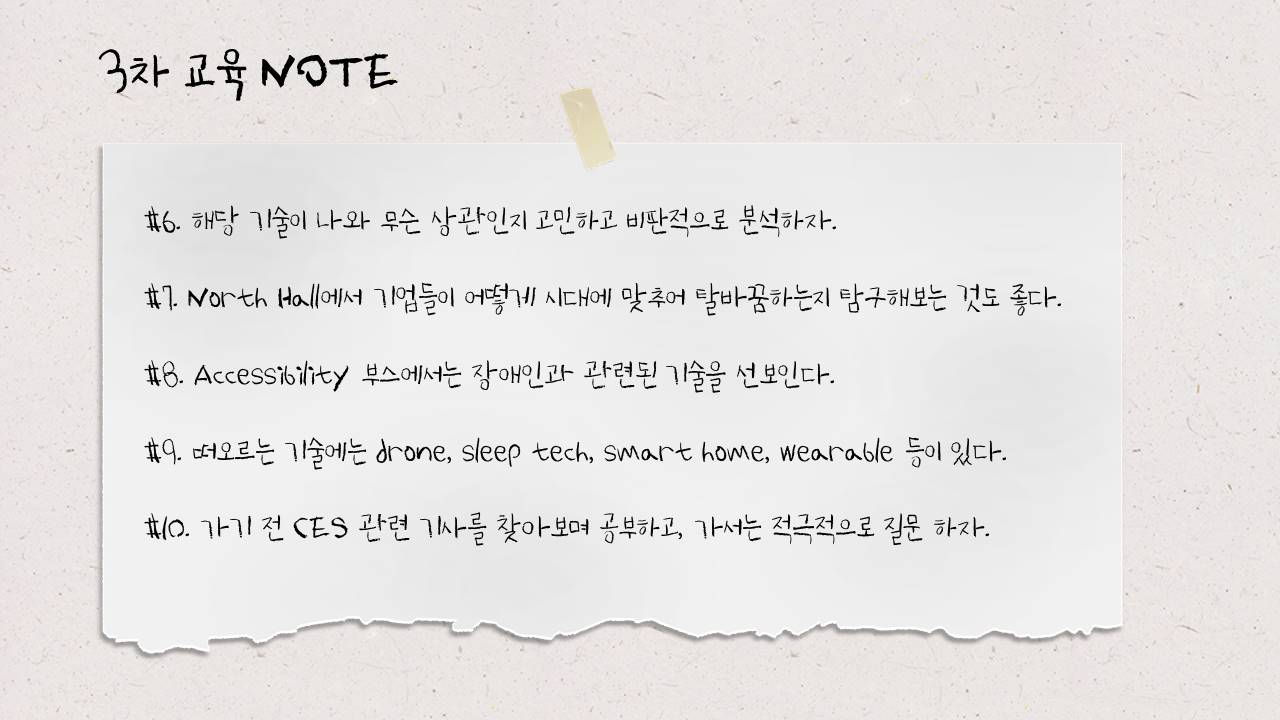 3차 교육 NOTE
#6. 해당 기술이 나와 무슨 상관인지 고민하고 비판적으로 분석하자.
#7. North Hall에서 기업들이 어떻게 시대에 맞추어 탈바꿈하는지 탐구해보는 것도 좋다.
#8. Accessibility 부스에서는 장애인과 관련된 기술을 선보인다.
#9. 떠오르는 기술에는 drone, sleep tech, smart home, wearable 등이 있다.
#10. 가기 전 CES 관련 기사를 찾아보며 공부하고, 가서는 적극적으로 질문 하자.